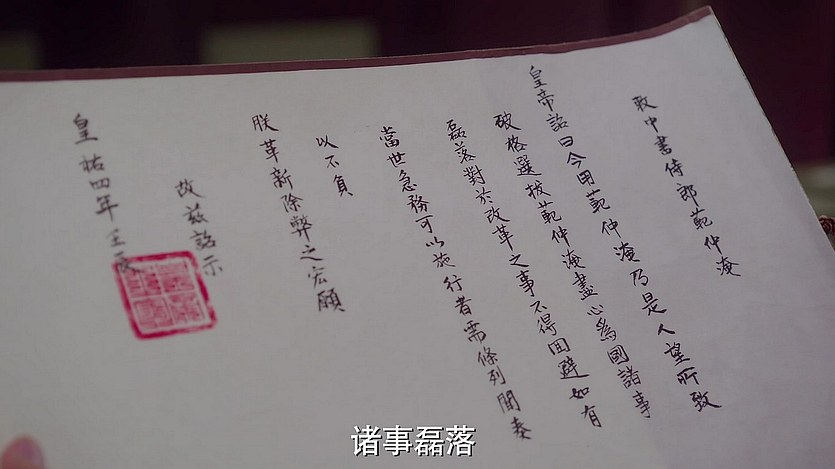 敕中書侍郎範仲淹
皇帝詔曰今用範仲淹乃是人望所致
破格選拔範仲淹盡心爲國諸事
磊落對於改革之事不得回避如有
當世急務可以施行者需條列聞奏
以不負
朕革新除弊之宏願
故茲詔示
皇祐四年壬辰
诸事磊落